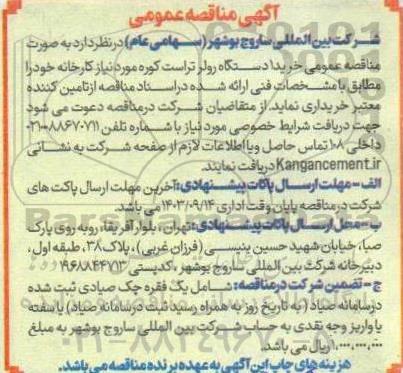 آگهی مناقصه عمومی
شرکت بین المللی ساروج بوشهر (سهامی عام) در نظر دارد به صورت
مناقصه عمومی خرید ۱ دستگاه رولر تراست کوره مورد نیاز کارخانه خود را
مطابق با مشخصات فنی ارائه شده در اسناد مناقصه از تامین کننده
معتبر خریداری نماید. از متقاضیان شرکت در مناقصه دعوت می شود
جهت دریافت شرایط خصوصی مورد نیاز با شماره تلفن ۸۸۶۷۰۷۱۱-۰۲۱
داخلی ۱۰۸ تماس حاصل و یا اطلاعات لازم از صفحه شرکت به نشانی
Kangancement.ir دریافت نمایند.
الف - مهلت ارسال پاکات پیشنهادی: آخرین مهلت ارسال پاکت های
شرکت در مناقصه پایان وقت اداری ۱۴۰۳/۰۹/۱۴ می باشد.
ب - محل ارسال پاکات پیشنهادی: تهران، بلوار آفریقا، روبه روی پارک
صبا، خیابان شهید حسین پنبسی (فرزان غربی)، پلاک ۳۸، طبقه اول،
دبیرخانه شرکت بین المللی ساروج بوشهر، کدپستی ۱۹۶۸۸۴۴۷۱۳
ج - تضمین شرکت در مناقصه: شامل یک فقره چک صیادی ثبت شده
در سامانه صیاد (به تاریخ روز به همراه رسید ثبت در سامانه صیاد) یا سفته
یا واریز وجه نقدی به حساب شرکت بین المللی ساروج بوشهر به مبلغ
۱,۰۰۰,۰۰۰,۰۰۰ ریال می باشد.
هزینه های چاپ این آگهی به عهده برنده مناقصه می باشد.